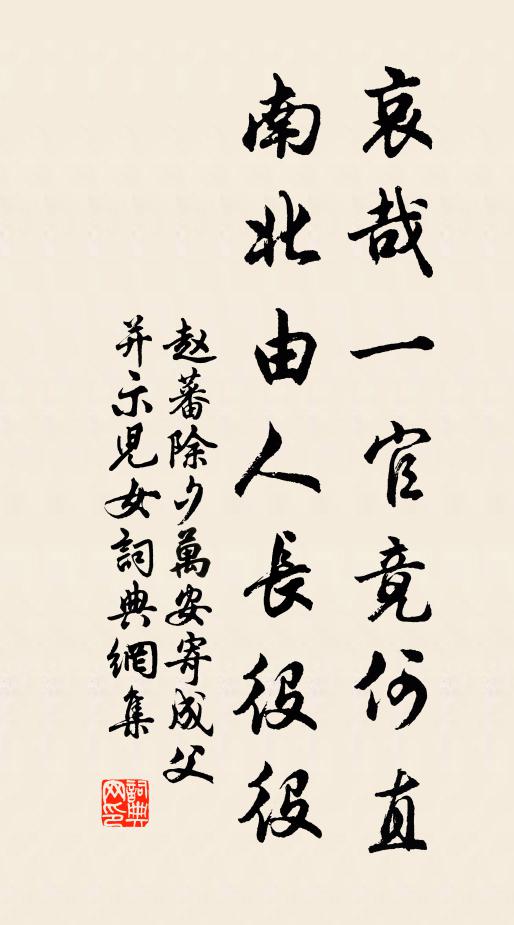 哀哉一官竟何直
南北由人長役役
赵蕃除夕萬安寄成父
并示児女詞典網集
詞典网印